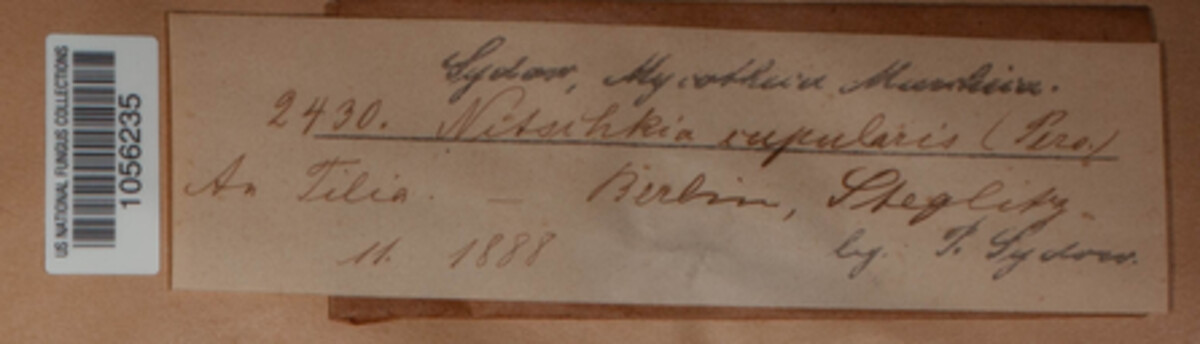 US NATIONAL FUNGUS COLLECTIONS
1056235
Sydow, Mycotheca Marchica.
2430. Nitschkia cupularis (Pers.)
An Tilia. — Berlin, Steglitz.
11. 1888
leg. P. Sydow.